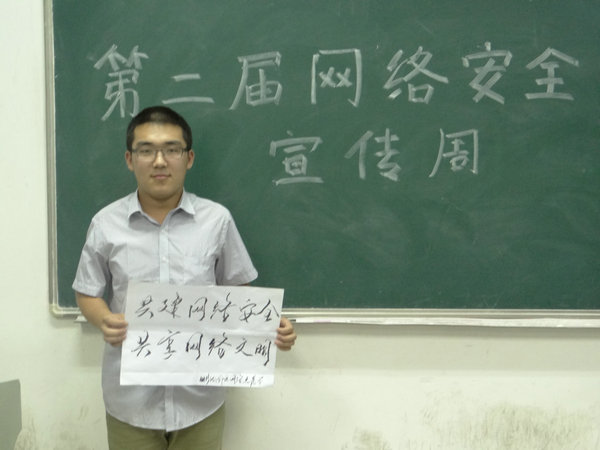 第二届网络安全
宣传周
共建网络安全
共享网络文明